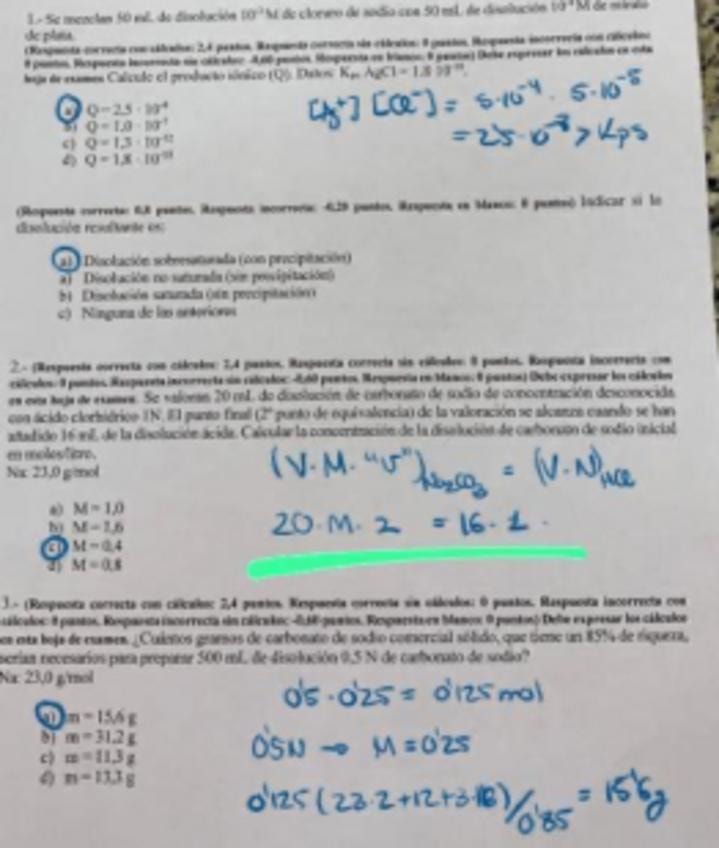 1.- Se mezclan 50 mL de disolución M de cloruro de sodio con 50 mL de disolución M de nitrato
de plata.
(Respuesta correcta con cálculos: 2,4 puntos. Respuesta correcta sin cálculos: 0 puntos. Respuesta incorrecta con cálculos:
0 puntos. Respuesta incorrecta sin cálculos: -0,60 puntos. Respuesta en blanco: 0 puntos) Debe expresar los cálculos en esta
hoja de examen Calcule el producto iónico (Q). Datos: AgCl = 1,8
a) Q=2,5 ·
b) Q=1,0 ·
c) Q=1,3 ·
d) Q=1,8 ·
[Ag⁺] [Cl⁻] = 5·10⁻⁴ · 5·10⁻⁵
= 25· > Kps
(Respuesta correcta: 0,8 puntos. Respuesta incorrecta: puntos. Respuesta en blanco: 0 puntos) Indicar si la
disolución resultante es:
a) Disolución sobresaturada (con precipitación)
a) Disolución no saturada (sin precipitación)
b) Disolución saturada (sin precipitación)
c) Ninguna de las anteriores
2.- (Respuesta correcta con cálculos: 2,4 puntos. Respuesta correcta sin cálculos: 0 puntos. Respuesta incorrecta con
cálculos: 0 puntos. Respuesta incorrecta sin cálculos: -0,60 puntos. Respuesta en blanco: 0 puntos) Debe expresar los cálculos
en esta hoja de examen. Se valoran 20 mL de disolución de carbonato de sodio de concentración desconocida
con ácido clorhídrico 1N. El punto final (2º punto de equivalencia) de la valoración se alcanza cuando se han
añadido 16 mL de la disolución ácida. Calcular la concentración de la disolución de carbonato de sodio inicial
en moles/litro.
Na: 23,0 g/mol
(V·M·"v")Na₂CO₃ = (V·N)HCl
a) M=1,0
b) M=1,6
c) M=0,4
d) M=0,8
20·M·2 = 16·1·
3.- (Respuesta correcta con cálculos: 2,4 puntos. Respuesta correcta sin cálculos: 0 puntos. Respuesta incorrecta con
cálculos: 0 puntos. Respuesta incorrecta sin cálculos: -0,60 puntos. Respuesta en blanco: 0 puntos) Debe expresar los cálculos
en esta hoja de examen. ¿Cuántos gramos de carbonato de sodio comercial sólido, que tiene un 85% de riqueza,
serían necesarios para preparar 500 mL de disolución 0,5 N de carbonato de sodio?
Na: 23,0 g/mol
0'5·0'25 = 0'125 mol
a) m=15,6 g
b) m=31,2 g
c) m=11,3 g
d) m=13,3 g
0'5N → M=0'25
0'125(23·2+12+3·16)/0'85 = 15'6g